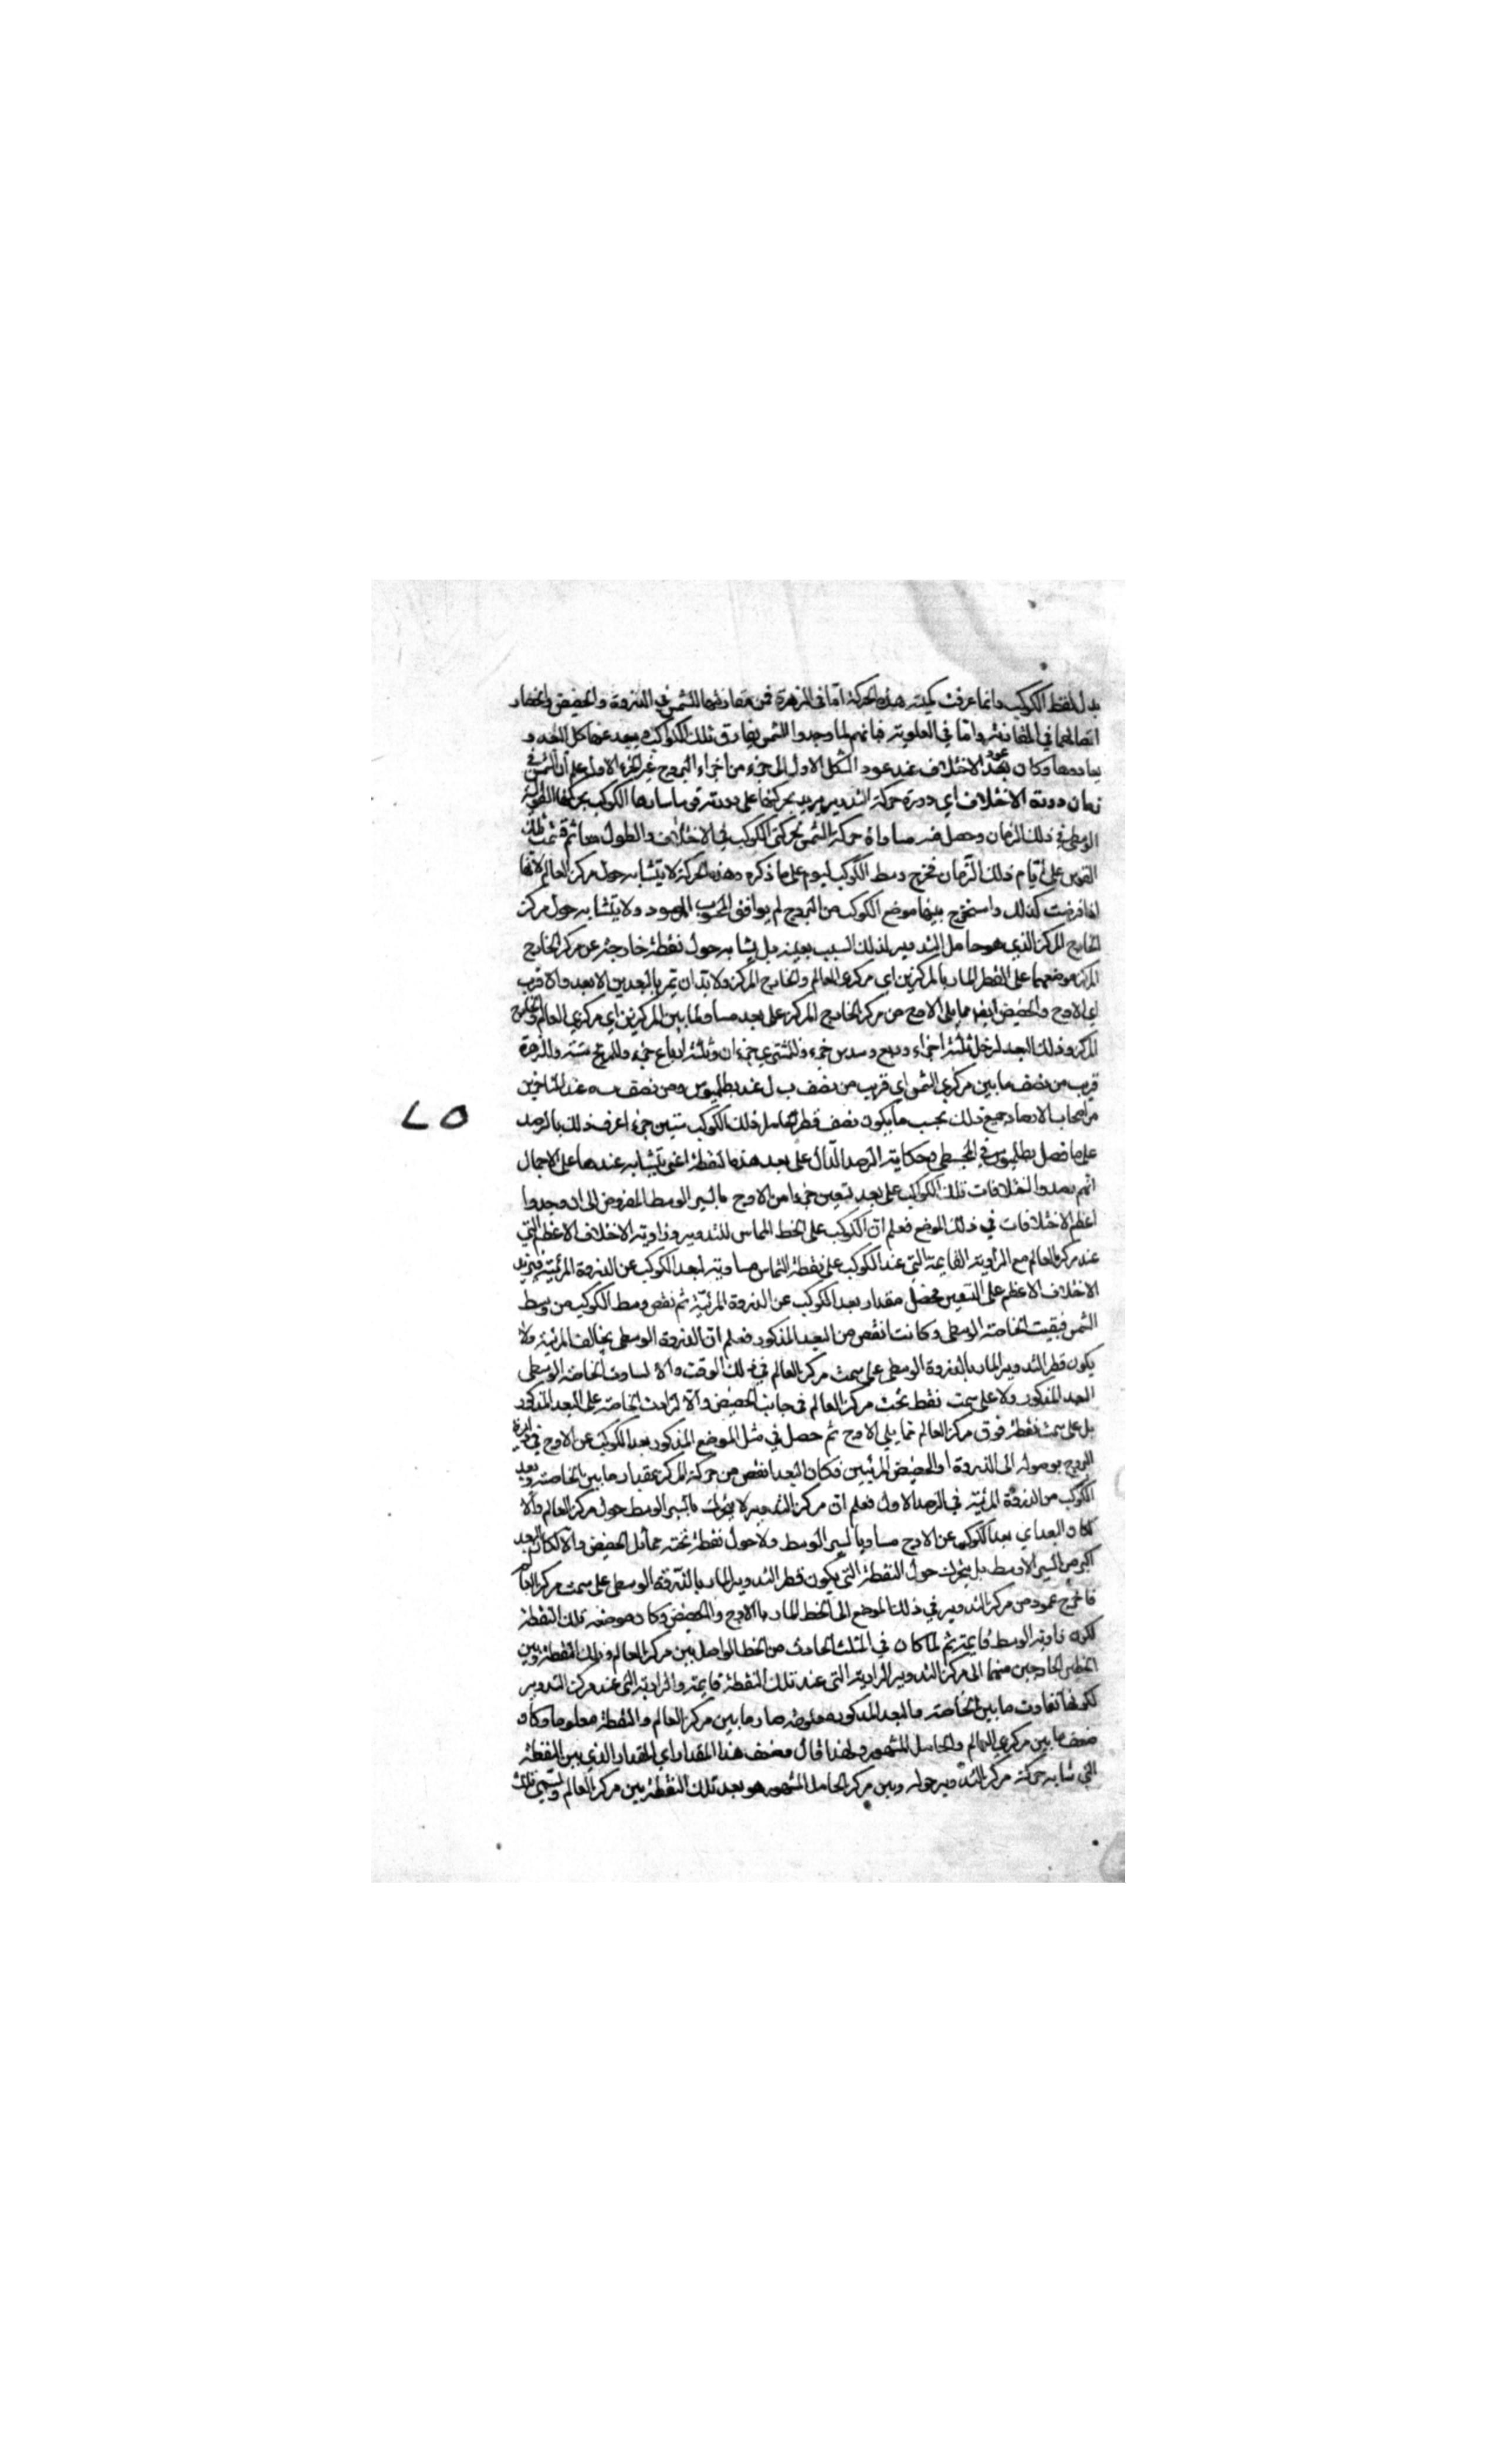 بدل لفظ الكوكب وانما عرفت كمية هذه الحركة اما في الزهرة فمن مقارنتها للشمس في الذروة والحضيض وانحصار
اتصالهما في المقارنة واما في العلوية فبانهم لما وجدوا الشمس يفارق تلك الكواكب ويبعد عنها كل البعد و
يعاودها وكان بعد عود الاختلاف عند عود الشكل الاول الى جزء من اجزاء البروج غير الجزء الاول علم ان الشمس في
زمان دورة الاختلاف اي دورة حركة التدوير يزيد بحركتها على دورة قوسا سارها الكوكب بحركتها الطولية
الوسطى في ذلك الزمان وحصل مساواة حركة الشمس لحركتي الكوكب في الاختلاف والطول معا ثم قسمت تلك
القوس على ايام ذلك الزمان فخرج وسط الكوكب ليوم على ما ذكره وهذه الحركة لا يتشابه حول مركز العالم لانها
اذا فرضت كذلك واستخرج بينها موضع الكوكب من البروج لم يوافق المحسوب المرصود ولا يتشابه حول مركز
الخارج المركز الذي هو حامل التدوير لذلك السبب بعينه بل يشابه حول نقطة خارجة عن مركز الخارج
المركز موضعهما على القطر المار بالمركزين اي مركزي العالم والخارج المركز ولا بد ان تمر بالبعدين الابعد والاقرب
اي الاوج والحضيض ايضا مما يلي الاوج من مركز الخارج المركز على بعد مساو لما بين المركزين اي مركزي العالم والخارج
المركز وذلك البعد لزحل ثلثة اجزاء وربع وسدس جزء وللمشتري جزءان وثلثة ارباع جزء وللمريخ ستة وللزهرة
قريب من نصف ما بين مركزي الشمس اي قريب من نصف ب ل عند بطلميوس ومن نصف عند المتاخرين
من اصحاب الارصاد جميع ذلك بحسب ما يكون نصف قطر الحامل لذلك الكوكب ستين جزءا عرف ذلك بالرصد
على ما فصل بطلميوس في المجسطي وحكاية الرصد الدال على بعد هذه النقطة اعني يتشابه عندها على الاجمال
انهم رصدوا اختلافات تلك الكوكب على بعد تسعين جزءا من الاوج بالسير الوسط المفروض الى ان وجدوا
اعظم الاختلافات في ذلك الموضع فعلم ان الكوكب على الخط المماس للتدوير وزاوية الاختلاف الاعظم التي
عند مركز العالم مع الزاوية القائمة التي عند الكوكب على نقطة التماس مساوية لبعد الكوكب عن الذروة المرئية فزيد
الاختلاف الاعظم على التسعين فحصل مقدار بعد الكوكب عن الذروة المرئية ثم نقص وسط الكوكب من وسط
الشمس فبقيت الخاصة الوسطى وكانت انقص من البعد المذكور فعلم ان الذروة الوسطى يخالف المرئية ولا
يكون قطر التدوير المار بالذروة الوسطى على سمت مركز العالم في ذلك الوقت والا لساوت الخاصة الوسطى
البعد المذكور ولا على سمت نقط تحت مركز العالم في جانب الحضيض والا لزادت الخاصة على البعد المذكور
بل على سمت نقطة فوق مركز العالم مما يلي الاوج ثم حصل في مثل الموضع المذكور بعد الكوكب عن الاوج في دايرة
البروج بوصوله الى الذروة او الحضيض المرئيين فكان البعد انقص من حركة المركز بمقدار ما بين الخاصة وبعد
الكوكب من الذروة المرئية في الرصد الاول فعلم ان مركز التدوير لا يتحرك بالسير الوسط حول مركز العالم والا
لكان البعد اي بعد الكوكب عن الاوج مساويا لسير الوسط ولا حول نقطة تحته مما يلي الحضيض والا لكان البعد
اكبر من السير الاوسط بل يتحرك حول النقطة التي يكون قطر التدوير المار بالذروة الوسطى على سمت مركز العالم
فاخرج عمود من مركز التدوير في ذلك الموضع الى الخط المار بالاوج والحضيض وكان موضعه تلك النقطة
لكون زاوية الوسط قايمة ثم لما كان في المثلث الحادث من الخط الواصل بين مركز العالم وتلك النقطة وبين
الخطين الخارجين منهما الى مركز التدوير الزاوية التي عند تلك النقطة قايمة والزاوية التي عند مركز التدوير
لكونها تفاوت ما بين الخاصة والبعد المذكور معلومة صار ما بين مركز العالم والنقطة معلوما وكان
ضعف ما بين مركزي العالم والحامل المشهور ولهذا قال وضعف هذا المقدار اي المقدار الذي بين النقطة
التي تشابه حركة مركز التدوير حوله وبين مركز الحامل المشهور هو بعد تلك النقطة بين مركز العالم ويسمى تلك